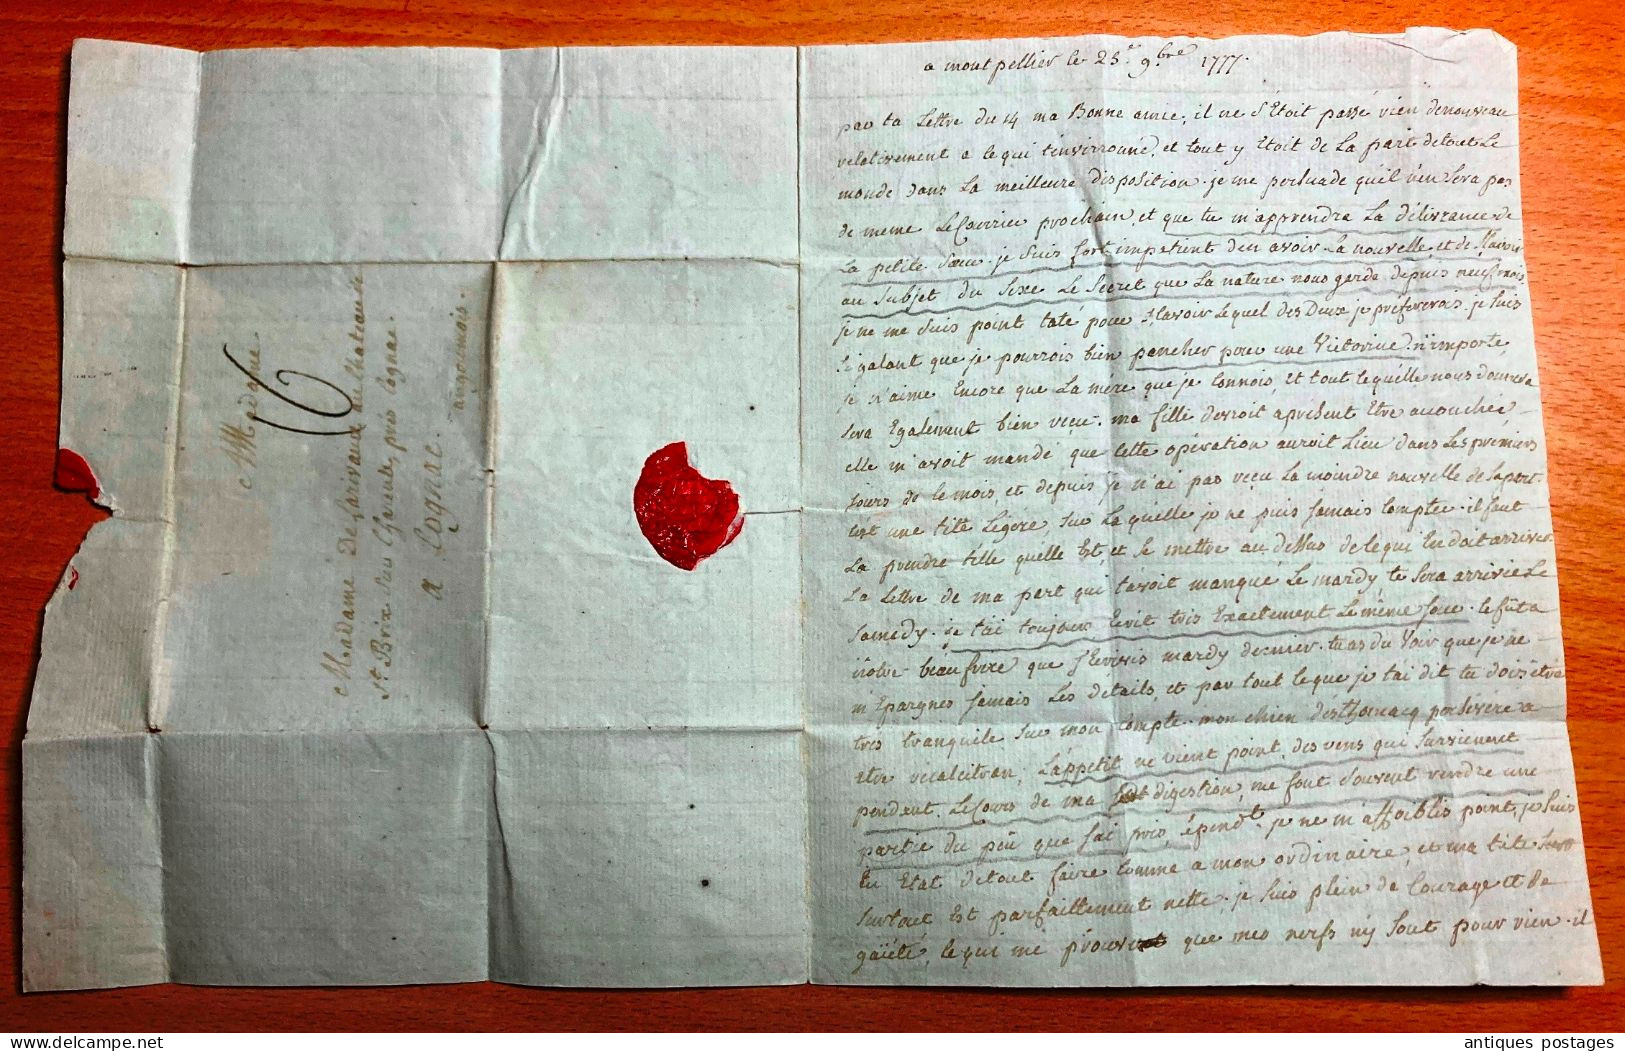 Madame
Madame Delarivaux au chateau de
St Brix Sur Charente, près Cognac.
a Cognac.
angoumois.
6
a montpellier le 25e 9.bre 1777.
par ta Lettre du 14 ma Bonne amie, il ne S'Etoit passé rien de nouveau
relativement a ce qui t'environne, et tout y Etoit de La part de tout Le
monde dans La meilleure disposition. je me persuade qu'il n'en Sera pas
de meme Le Courrier prochain, et que tu m'apprendra La délivrance de
La petite Soeur. je Suis fort impatient d'en avoir La nouvelle, et de Sçavoir
au Subjet du Sexe Le Secret que La nature nous garde depuis neuf mois,
je ne me Suis point taté pour Sçavoir Lequel des Deux je préfererois. je Suis
Si galant que je pourrois bien pancher pour une Victorine. n'importe,
je n'aime Encore que La mère que je connois, Et tout ce qu'elle nous donnera
Sera Egalement bien reçu. ma fille devroit aprésent Etre accouchée
elle m'avoit mandé que cette opération auroit Lieu dans Les premiers
jours de ce mois et depuis je n'ai pas reçu La moindre nouvelle de Sa part.
c'est une tête Légere, Sur Laquelle je ne puis jamais compter. il faut
La prendre telle quelle Est, et Se mettre au dessus de ce qui En doit arriver.
La Lettre de ma part qui t'avoit manqué Le mardy te Sera arrivée Le
Samedy. je t'ai toujour Ecrit très Exactement Le même jour. ce fut a
nôtre beaufrere que j'Ecrivis mardy dernier. tu as du Voir que je ne
m'Epargnes jamais Les détails, et par tout ce que je t'ai dit tu dois être
très tranquile Sur mon compte. mon chien d'esthomacq persévère a
etre recalcitran, L'appetit ne vient point, des vens qui Surviennent
pendant Le Cours de ma digestion, me font Souvent rendre une
partie du peu que j'ai pris, cépendt. je ne m'affoiblis point, je Suis
En Etat de tout faire comme a mon ordinaire, et ma tête
Surtout Est parfaittement nette, je Suis plein de Courage et de
gaïété, ce qui me prouve que mes nerfs n'y Sont pour rien. il
antiques postages